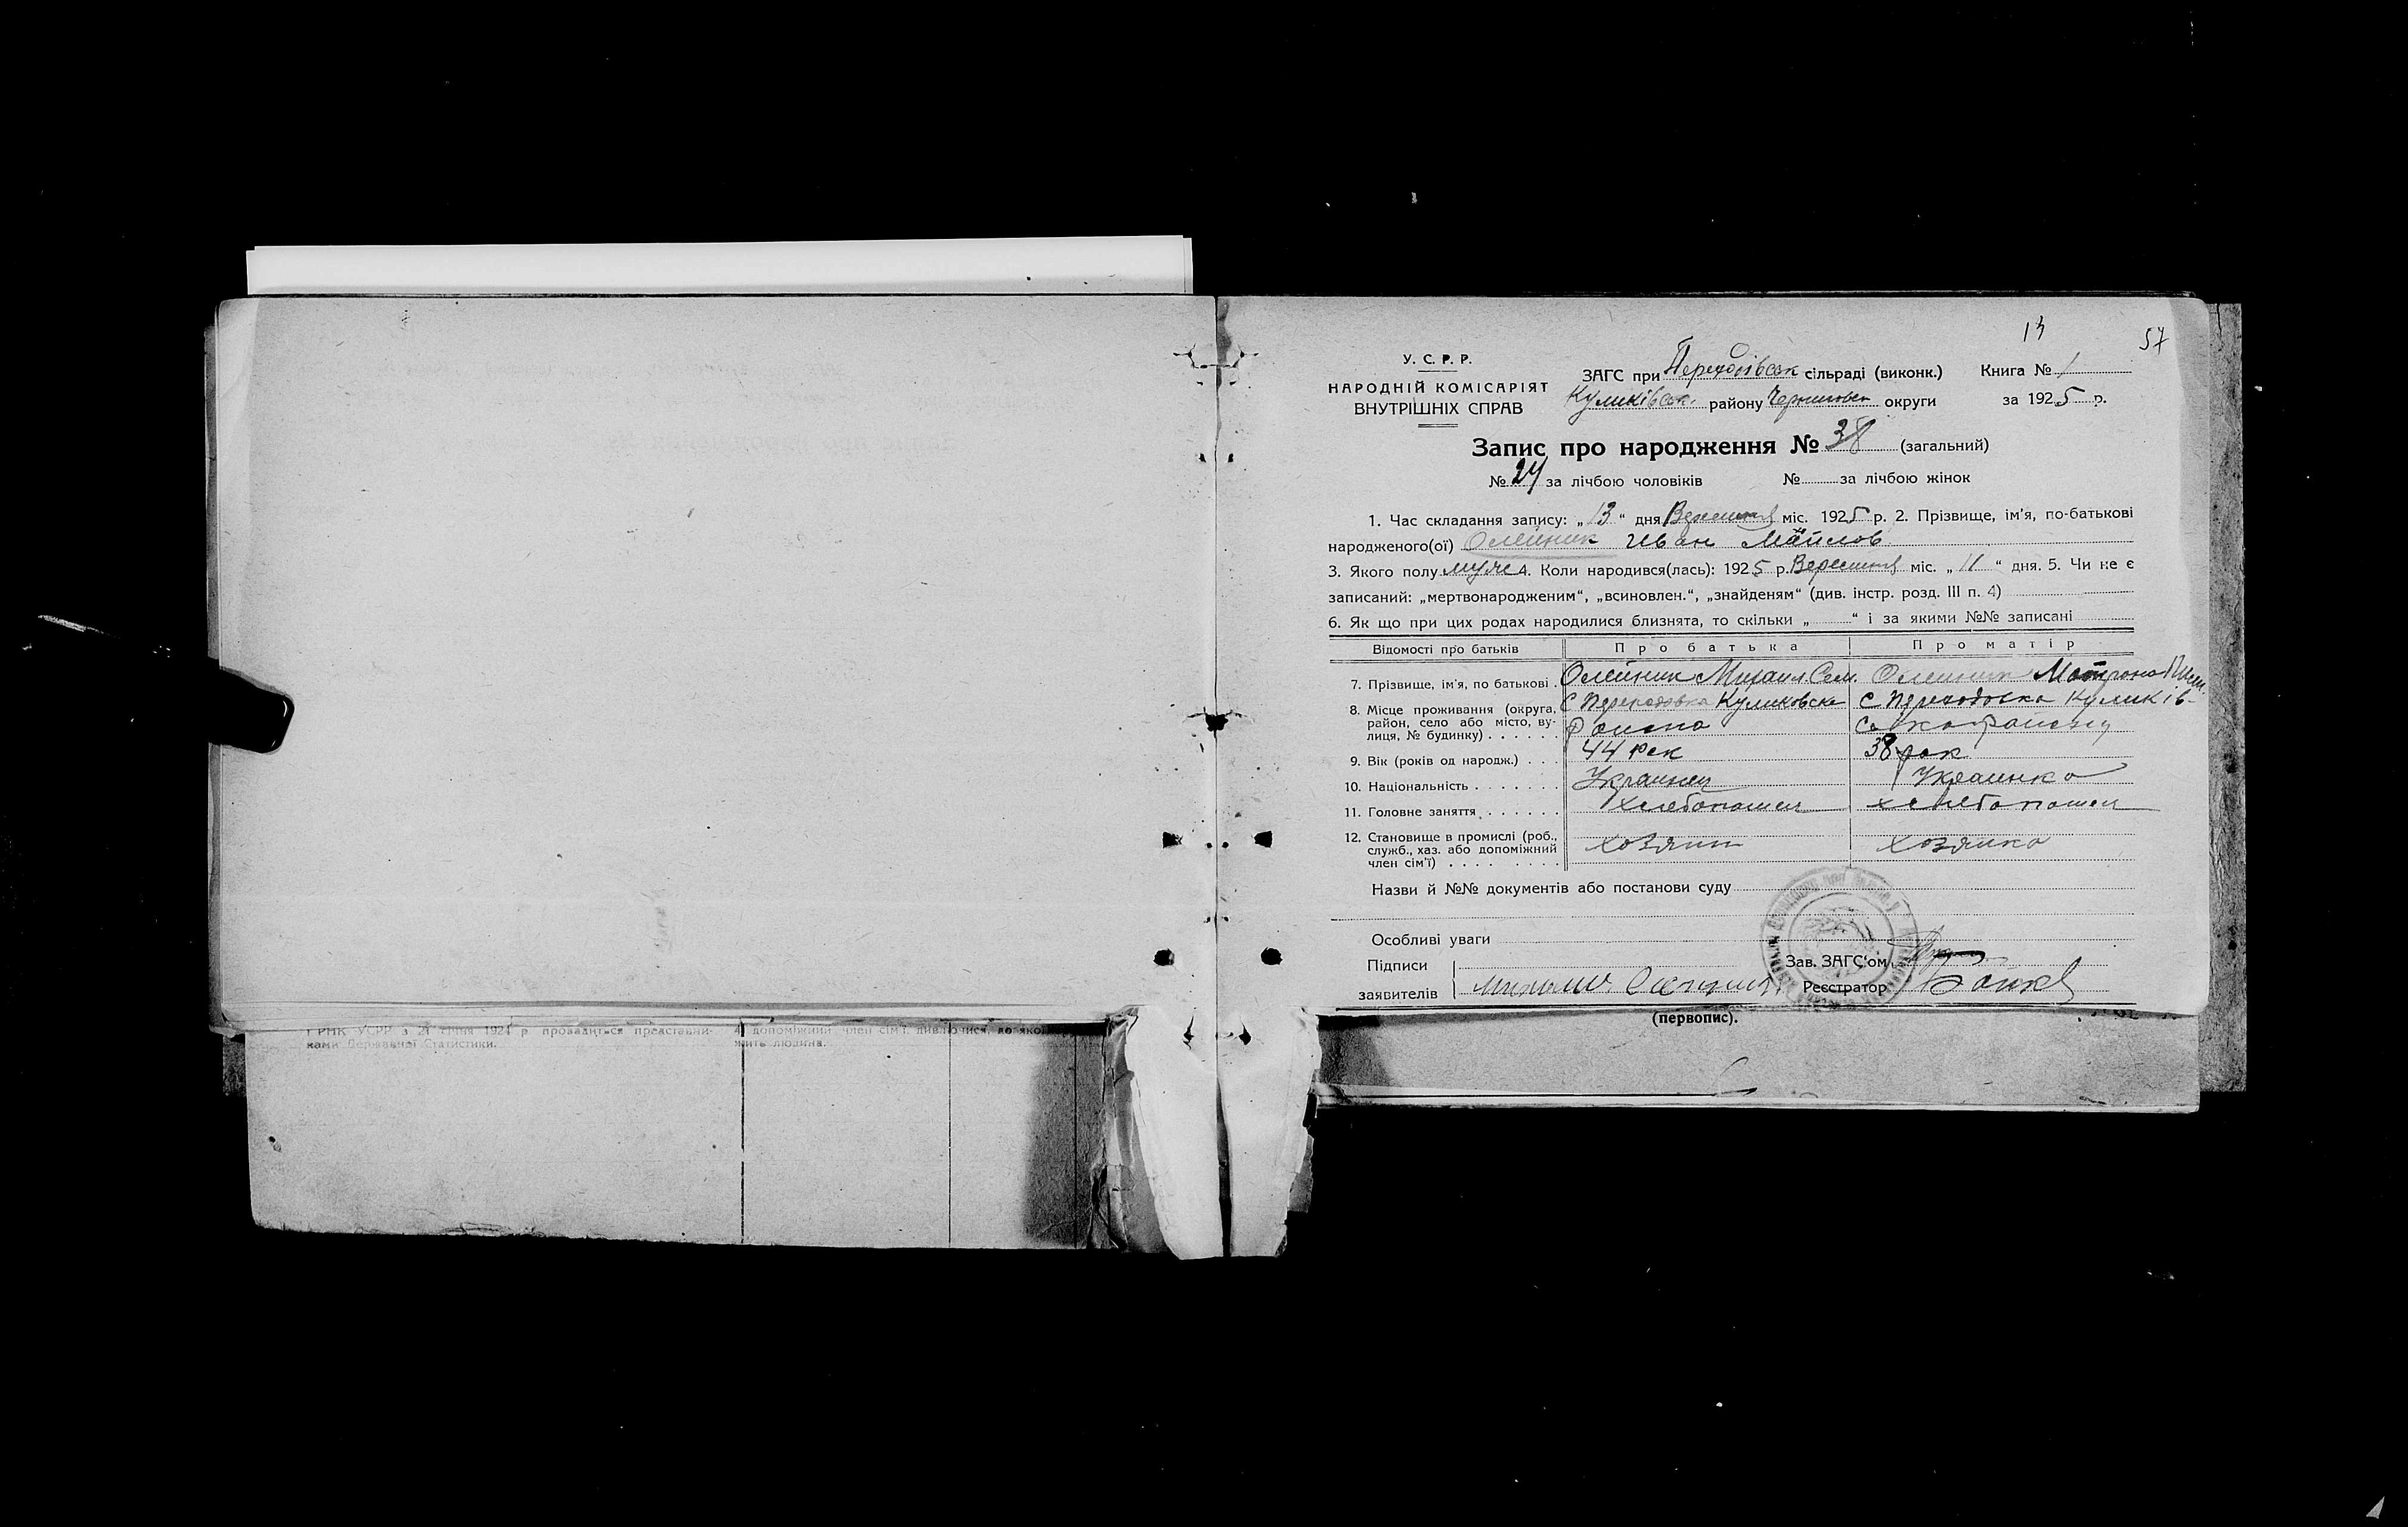 13
57
У. С. Р. Р.
НАРОДНІЙ КОМІСАРІЯТ
ВНУТРІШНІХ СПРАВ
ЗАГС при Переходівськ сільраді (виконк.) Книга № 1
Куликівськ. району Черниговск округи за 1925 р.
Запис про народження № 38 (загальний)
№ 24 за лічбою чоловіків № за лічбою жінок
1. Час складання запису: „13“ дня Вересня міс. 1925 р. 2. Прізвище, ім'я, по-батькові
народженого(ої) Олейник Иван Майлов
3. Якого полу муже 4. Коли народився(лась): 1925 р. Вересня міс. „11“ дня. 5. Чи не є
записаний: „мертвонародженим“, „всиновлен.“, „знайденям“ (див. інстр. розд. III п. 4)
6. Як що при цих родах народилися близнята, то скільки „ “ і за якими №№ записані
Відомості про батьків Про батька Про матір
7. Прізвище, ім'я, по батькові . Олейник Михаил Сем. Олейник Матрона
8. Місце проживання (округа, район, село або місто, вулиця, № будинку) . . . . . .
С Переходовка Куликовска Района
с Переходовка Куликів-
9. Вік (років од народж.) . . . 44 рок 38 рок
10. Національність . . . . . . . Украинец Украинка
11. Головне заняття . . . . . . хлебопашец хлебопашец
12. Становище в промислі (роб., служб., хаз. або допоміжний член сім'ї) . . . . . . . .
хозяин хозяика
Назви й №№ документів або постанови суду
Особливі уваги
Підписи
заявителів
Зав. ЗАГС'ом
Реєстратор Бойко
(первопис).
РНК УСРР з 21 січня 1921 р провадиться представни-
ками Державної Статистики.
4) допоміжний член сім'ї, див
жить людина.